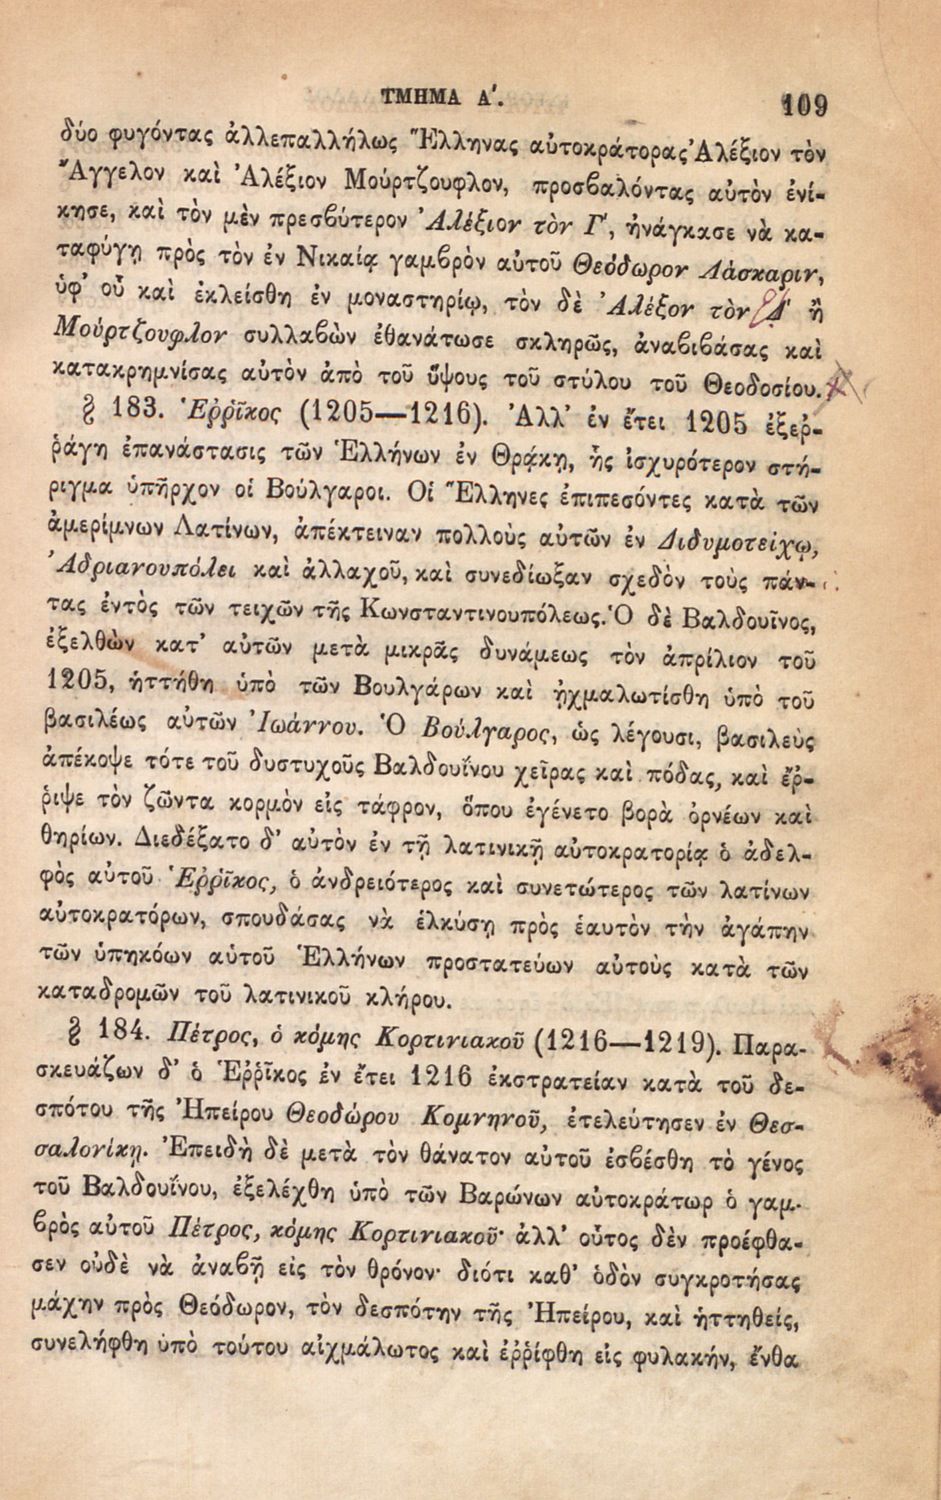 ΤΜΗΜΑ Α΄. 109
δύο φυγόντας ἀλλεπαλλήλως Ἕλληνας αὐτοκράτορας Ἀλέξιον τὸν
Ἄγγελον καὶ Ἀλέξιον Μούρτζουφλον, προσβαλόντας αὐτὸν ἐνί-
κησε, καὶ τὸν μὲν πρεσβύτερον Ἀλέξιον τὸν Γ΄, ἠνάγκασε νὰ κα-
ταφύγῃ πρὸς τὸν ἐν Νικαίᾳ γαμβρὸν αὐτοῦ Θεόδωρον Λάσκαριν,
ὑφ' οὗ καὶ ἐκλείσθη ἐν μοναστηρίῳ, τὸν δὲ Ἀλέξον τὸν Δ΄ ἢ
Μούρτζουφλον συλλαβὼν ἐθανάτωσε σκληρῶς, ἀναβιβάσας καὶ
κατακρημνίσας αὐτὸν ἀπὸ τοῦ ὕψους τοῦ στύλου τοῦ Θεοδοσίου.
§ 183. Ἐῤῥῖκος (1205—1216). Ἀλλ' ἐν ἔτει 1205 ἐξεῤ-
ῥάγη ἐπανάστασις τῶν Ἑλλήνων ἐν Θρᾴκῃ, ἧς ἰσχυρότερον στή-
ριγμα ὑπῆρχον οἱ Βούλγαροι. Οἱ Ἕλληνες ἐπιπεσόντες κατὰ τῶν
ἀμερίμνων Λατίνων, ἀπέκτειναν πολλοὺς αὐτῶν ἐν Διδυμοτείχῳ,
Ἀδριανουπόλει καὶ ἀλλαχοῦ, καὶ συνεδίωξαν σχεδὸν τοὺς πάν-
τας ἐντὸς τῶν τειχῶν τῆς Κωνσταντινουπόλεως. Ὁ δὲ Βαλδουῖνος,
ἐξελθὼν κατ' αὐτῶν μετὰ μικρᾶς δυνάμεως τὸν ἀπρίλιον τοῦ
1205, ἡττήθη ὑπὸ τῶν Βουλγάρων καὶ ᾐχμαλωτίσθη ὑπὸ τοῦ
βασιλέως αὐτῶν Ἰωάννου. Ὁ Βούλγαρος, ὡς λέγουσι, βασιλεὺς
ἀπέκοψε τότε τοῦ δυστυχοῦς Βαλδουΐνου χεῖρας καὶ πόδας, καὶ ἔῤ-
ῥιψε τὸν ζῶντα κορμὸν εἰς τάφρον, ὅπου ἐγένετο βορὰ ὀρνέων καὶ
θηρίων. Διεδέξατο δ' αὐτὸν ἐν τῇ λατινικῇ αὐτοκρατορίᾳ ὁ ἀδελ-
φὸς αὐτοῦ Ἐῤῥῖκος, ὁ ἀνδρειότερος καὶ συνετώτερος τῶν λατίνων
αὐτοκρατόρων, σπουδάσας νὰ ἑλκύσῃ πρὸς ἑαυτὸν τὴν ἀγάπην
τῶν ὑπηκόων αὑτοῦ Ἑλλήνων προστατεύων αὐτοὺς κατὰ τῶν
καταδρομῶν τοῦ λατινικοῦ κλήρου.
§ 184. Πέτρος, ὁ κόμης Κορτινιακοῦ (1216—1219). Παρα-
σκευάζων δ' ὁ Ἐῤῥῖκος ἐν ἔτει 1216 ἐκστρατείαν κατὰ τοῦ δε-
σπότου τῆς Ἠπείρου Θεοδώρου Κομνηνοῦ, ἐτελεύτησεν ἐν Θεσ-
σαλονίκῃ. Ἐπειδὴ δὲ μετὰ τὸν θάνατον αὐτοῦ ἐσβέσθη τὸ γένος
τοῦ Βαλδουΐνου, ἐξελέχθη ὑπὸ τῶν Βαρώνων αὐτοκράτωρ ὁ γαμ-
βρὸς αὐτοῦ Πέτρος, κόμης Κορτινιακοῦ· ἀλλ' οὗτος δὲν προέφθα-
σεν οὐδὲ νὰ ἀναβῇ εἰς τὸν θρόνον· διότι καθ' ὁδὸν συγκροτήσας
μάχην πρὸς Θεόδωρον, τὸν δεσπότην τῆς Ἠπείρου, καὶ ἡττηθείς,
συνελήφθη ὑπὸ τούτου αἰχμάλωτος καὶ ἐῤῥίφθη εἰς φυλακήν, ἔνθα